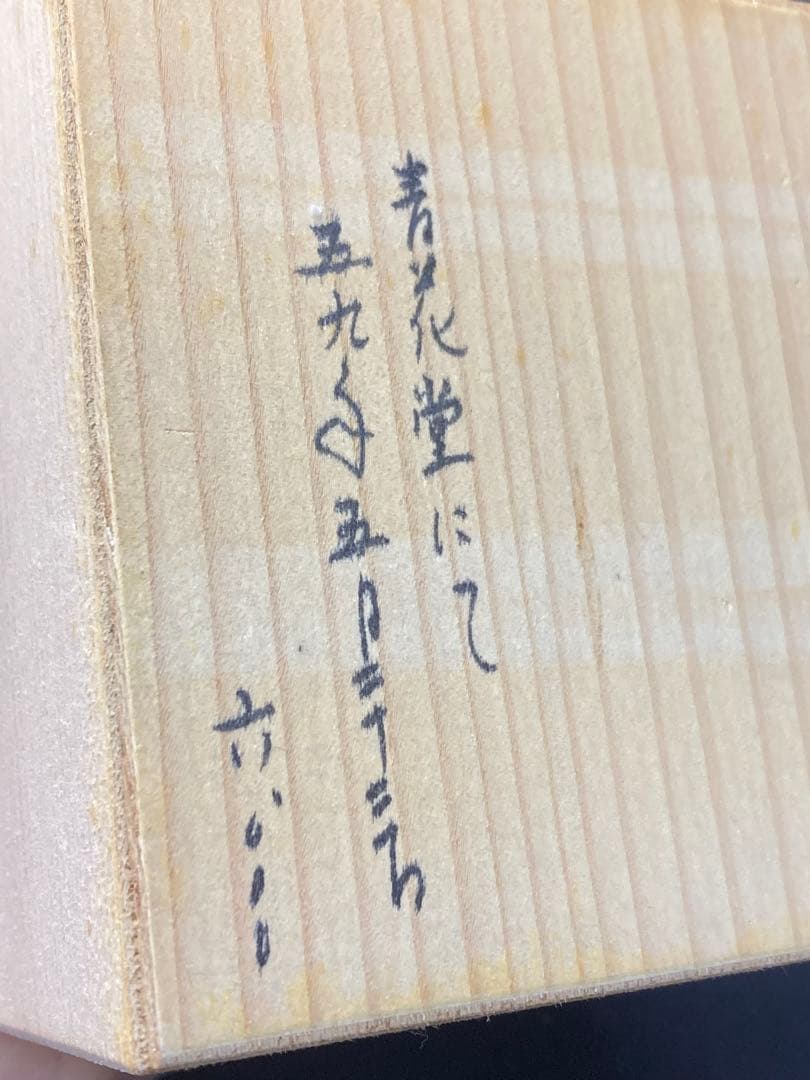 青花堂にて
五九年五月二十二日
六、〇〇〇